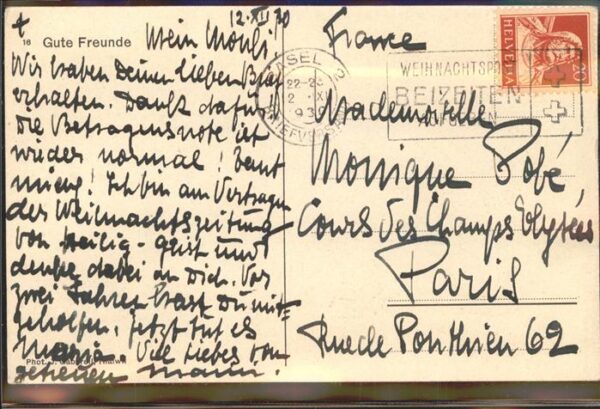 12. XII 30
16 Gute Freunde
Mein Mouli
Wir haben Deinen lieben Brief
erhalten. Dank dafür!
Die Betragensnote ist
wieder normal!
Ich bin am Vertragen
der Weihnachtszeitung
von Heilig-Geist und
denke dabei an Dich. Vor
zwei Jahren hast Du mit-
geholfen, jetzt tut es
Maria. Viel liebes vom
getreuen Mann.
Phot.
France
BASEL 2
22-23
BRIEFVERSAND
WEIHNACHTSP
BEIZEITEN
HELVETIA
20
Mademoiselle
Monique Pobé,
Cours des Champs Elysées
Paris
Rue de Ponthieu 62